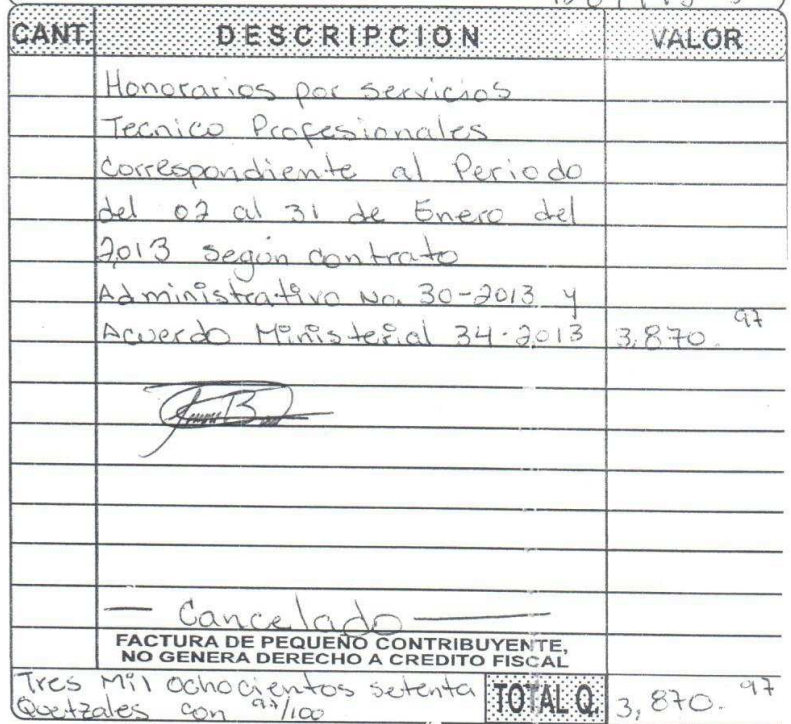 CANT. DESCRIPCION VALOR
Honorarios por servicios
Tecnico Profesionales
Correspondiente al Periodo
del 02 al 31 de Enero del
2,013 según contrato
Administrativo No. 30-2013 y
Acuerdo Ministerial 34-2,013 3,870.97
— Cancelado —
FACTURA DE PEQUEÑO CONTRIBUYENTE,
NO GENERA DERECHO A CREDITO FISCAL
Tres Mil ochocientos setenta
Quetzales con 97/100 TOTAL Q. 3,870.97